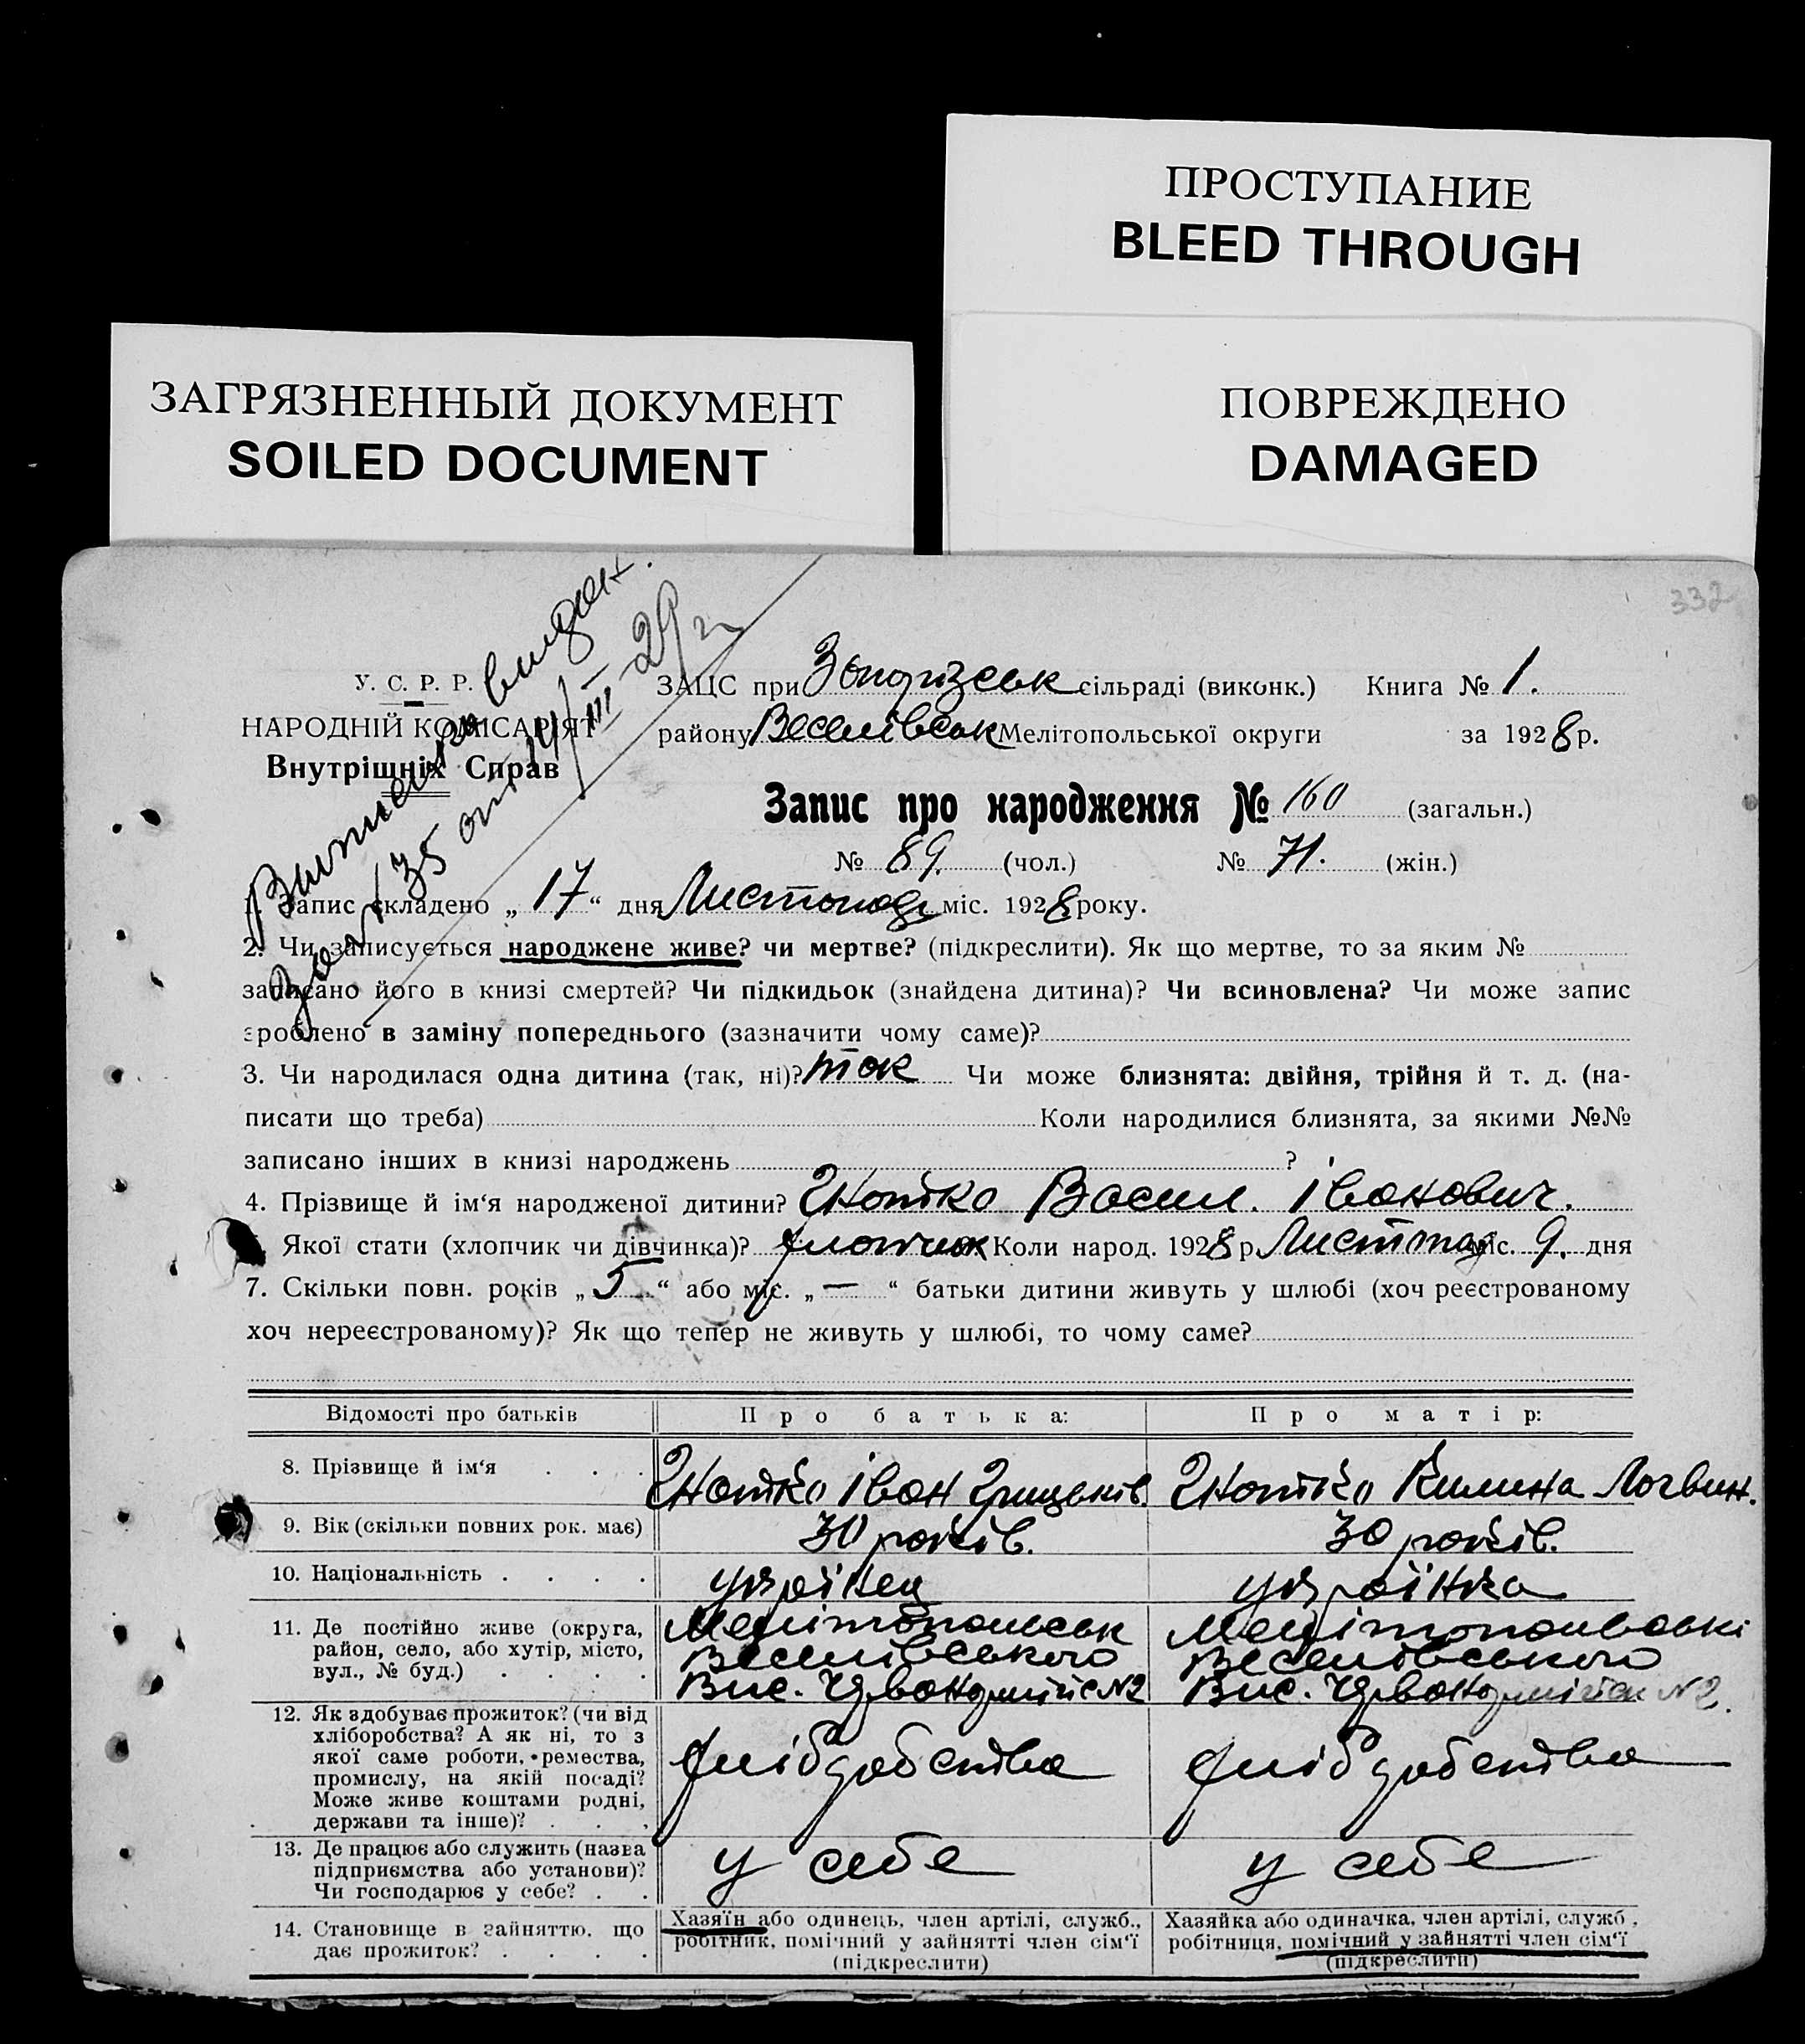 ПРОСТУПАНИЕ
BLEED THROUGH
ЗАГРЯЗНЕННЫЙ ДОКУМЕНТ
SOILED DOCUMENT
ПОВРЕЖДЕНО
DAMAGED
332
Виписка видан.
за № 35 от 14/III-29 г.
У. С. Р. Р.
НАРОДНІЙ КОМІСАРІЯТ
Внутрішніх Справ
ЗАЦС при Запорізськ сільраді (виконк.) Книга № 1.
району Веселівськ Мелітопольської округи за 1928 р.
Запис про народження № 160 (загальн.)
№ 89. (чол.) № 71. (жін.)
1. Запис складено „ 17 “ дня Листопада міс. 1928 року.
2. Чи записується народжене живе? чи мертве? (підкреслити). Як що мертве, то за яким №
записано його в книзі смертей? Чи підкидьок (знайдена дитина)? Чи всиновлена? Чи може запис
зроблено в заміну попереднього (зазначити чому саме)?
3. Чи народилася одна дитина (так, ні)? так Чи може близнята: двійня, трійня й т. д. (на-
писати що треба) Коли народилися близнята, за якими №№
записано інших в книзі народжень ?
4. Прізвище й ім‘я народженої дитини? Гнатко Васил. Іванович.
Якої стати (хлопчик чи дівчинка)? хлопчик Коли народ. 1928 р. Листопад міс. 9. дня
7. Скільки повн. років „ 5 “ або міс. „ — “ батьки дитини живуть у шлюбі (хоч реєстрованому
хоч нереєстрованому)? Як що тепер не живуть у шлюбі, то чому саме?
Відомості про батьків Про батька: Про матір:
8. Прізвище й ім‘я . . . Гнатко Іван Грицьків. Гнатко Килина Логвин.
9. Вік (скільки повних рок. має) 30 років. 30 років.
10. Національність . . . . українец українка
11. Де постійно живе (округа,
район, село, або хутір, місто,
вул., № буд.) . . . .
Мелітопольськ
Веселівського
Вис. Червоноармійс №2
Мелітопольські
Веселівського
Вис. Червоноармійськ №2.
12. Як здобуває прожиток? (чи від
хліборобства? А як ні, то з
якої саме роботи, ремества,
промислу, на якій посаді?
Може живе коштами родні,
держави та інше)? . . .
хлібробства хлібробства
13. Де працює або служить (назва
підприємства або установи)?
Чи господарює у себе? . .
у себе у себе
14. Становище в зайняттю, що
дає прожиток? . . . .
Хазяїн або одинець, член артілі, служб.,
робітник, помічний у зайнятті член сім‘ї
(підкреслити)
Хазяйка або одиначка, член артілі, служб.,
робітниця, помічний у зайнятті член сім‘ї
(підкреслити)